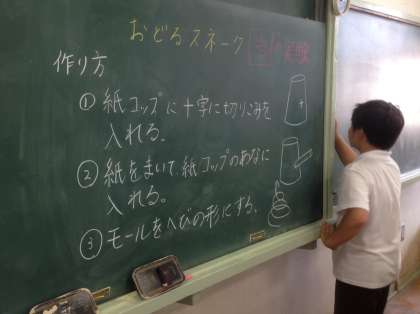 おどるスネーク
実験
作り方
① 紙コップに十字に切りこみを
入れる。
② 紙をまいて、紙コップのあなに
入れる。
③ モールをへびの形にする。